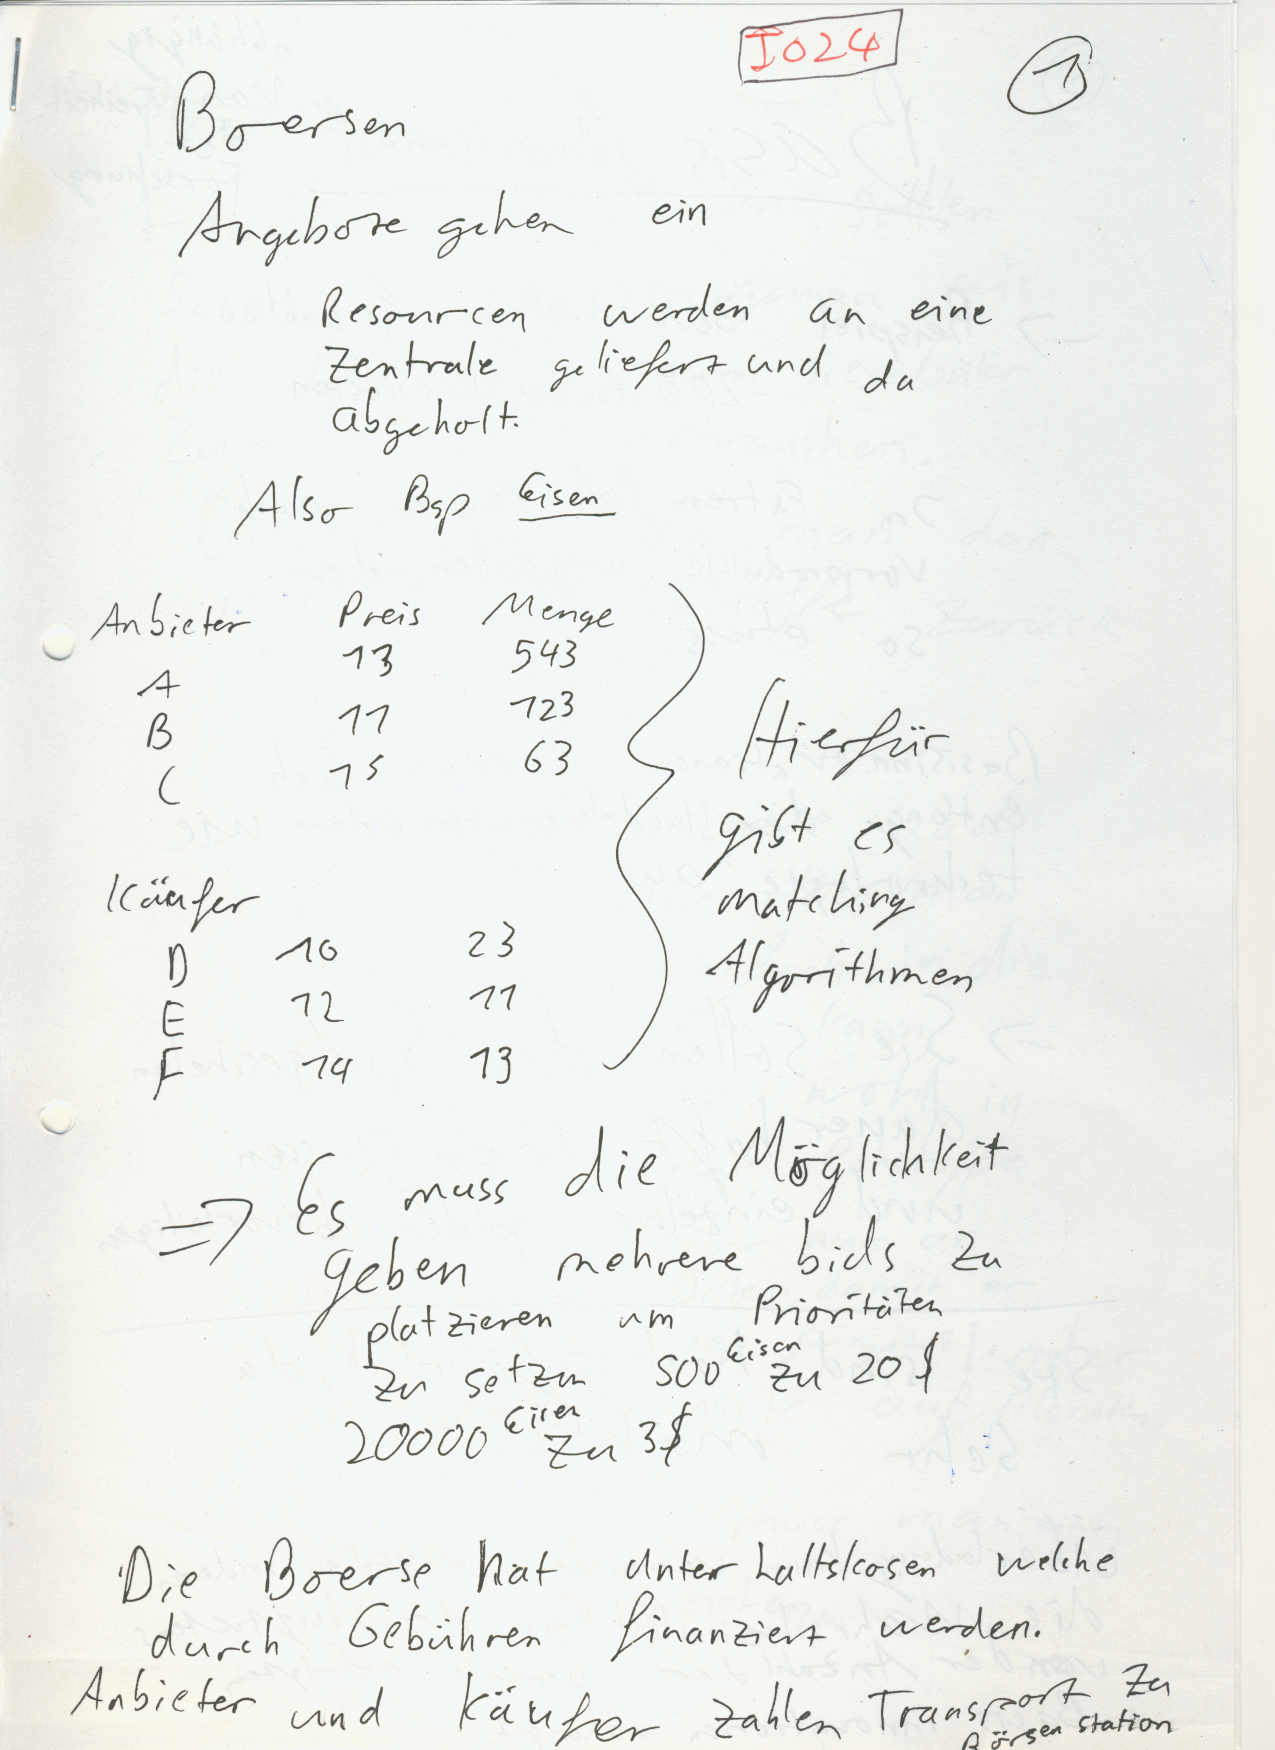 IO24
1
Boersen
Angebote gehen ein
Resourcen werden an eine
Zentrale geliefert und da
abgeholt.
Also Bsp Eisen
Anbieter Preis Menge
A 13 543
B 11 123
C 15 63
Hierfür
gibt es
matching
Algorithmen
Käufer
D 10 23
E 12 11
F 14 13
=> Es muss die Möglichkeit
geben mehrere bids zu
platzieren um Prioritäten
zu setzen 500 Eisen zu 20$
20000 Eisen zu 3$
Die Boerse hat Unterhaltskosen welche
durch Gebühren finanziert werden.
Anbieter und Käufer zahlen Transport zu
Börsen station